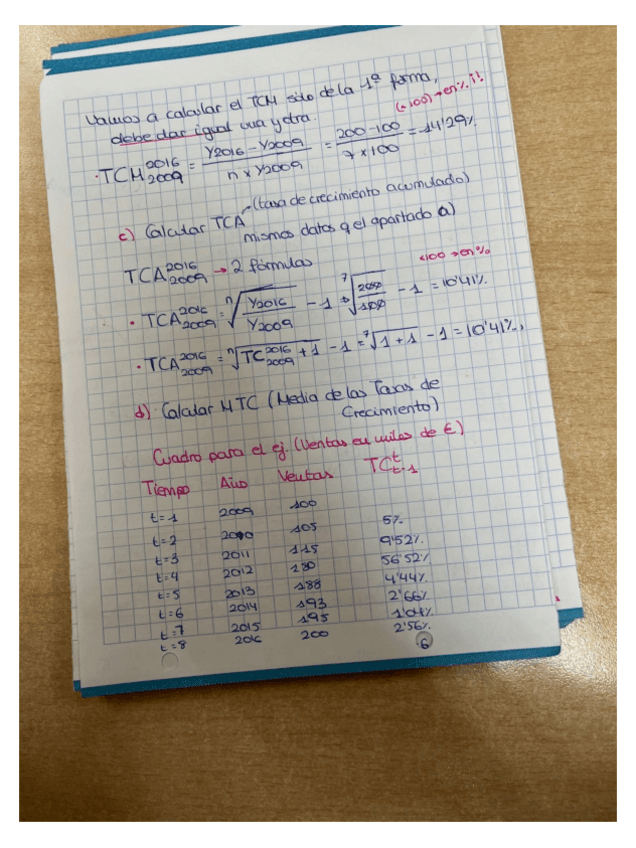 Vamos a calcular el TCM sólo de la 1ª forma,
debe dar igual una y otra.
(×100) → en % !!
· TCM 2016 2009 = Y2016 - Y2009 / n x Y2009 = 200 - 100 / 7 x 100 = 14'29%
c) Calcular TCA (tasa de crecimiento acumulado)
mismos datos q el apartado a)
TCA 2016 2009 → 2 fórmulas
×100 → en %
· TCA 2016 2009 = n√ Y2016 / Y2009 - 1 = 7√ 200 / 100 - 1 = 10'41%
· TCA 2016 2009 = n√ TC 2016 2009 + 1 - 1 = 7√ 1 + 1 - 1 = 10'41%
d) Calcular MTC (Media de las Tasas de
Crecimiento)
Cuadro para el ej. (Ventas en miles de €)
Tiempo Año Ventas TC t t-1
t=1 2009 100
t=2 2010 105 5%
t=3 2011 115 9'52%
t=4 2012 180 56'52%
t=5 2013 188 4'44%
t=6 2014 193 2'66%
t=7 2015 195 1'04%
t=8 2016 200 2'56%
6